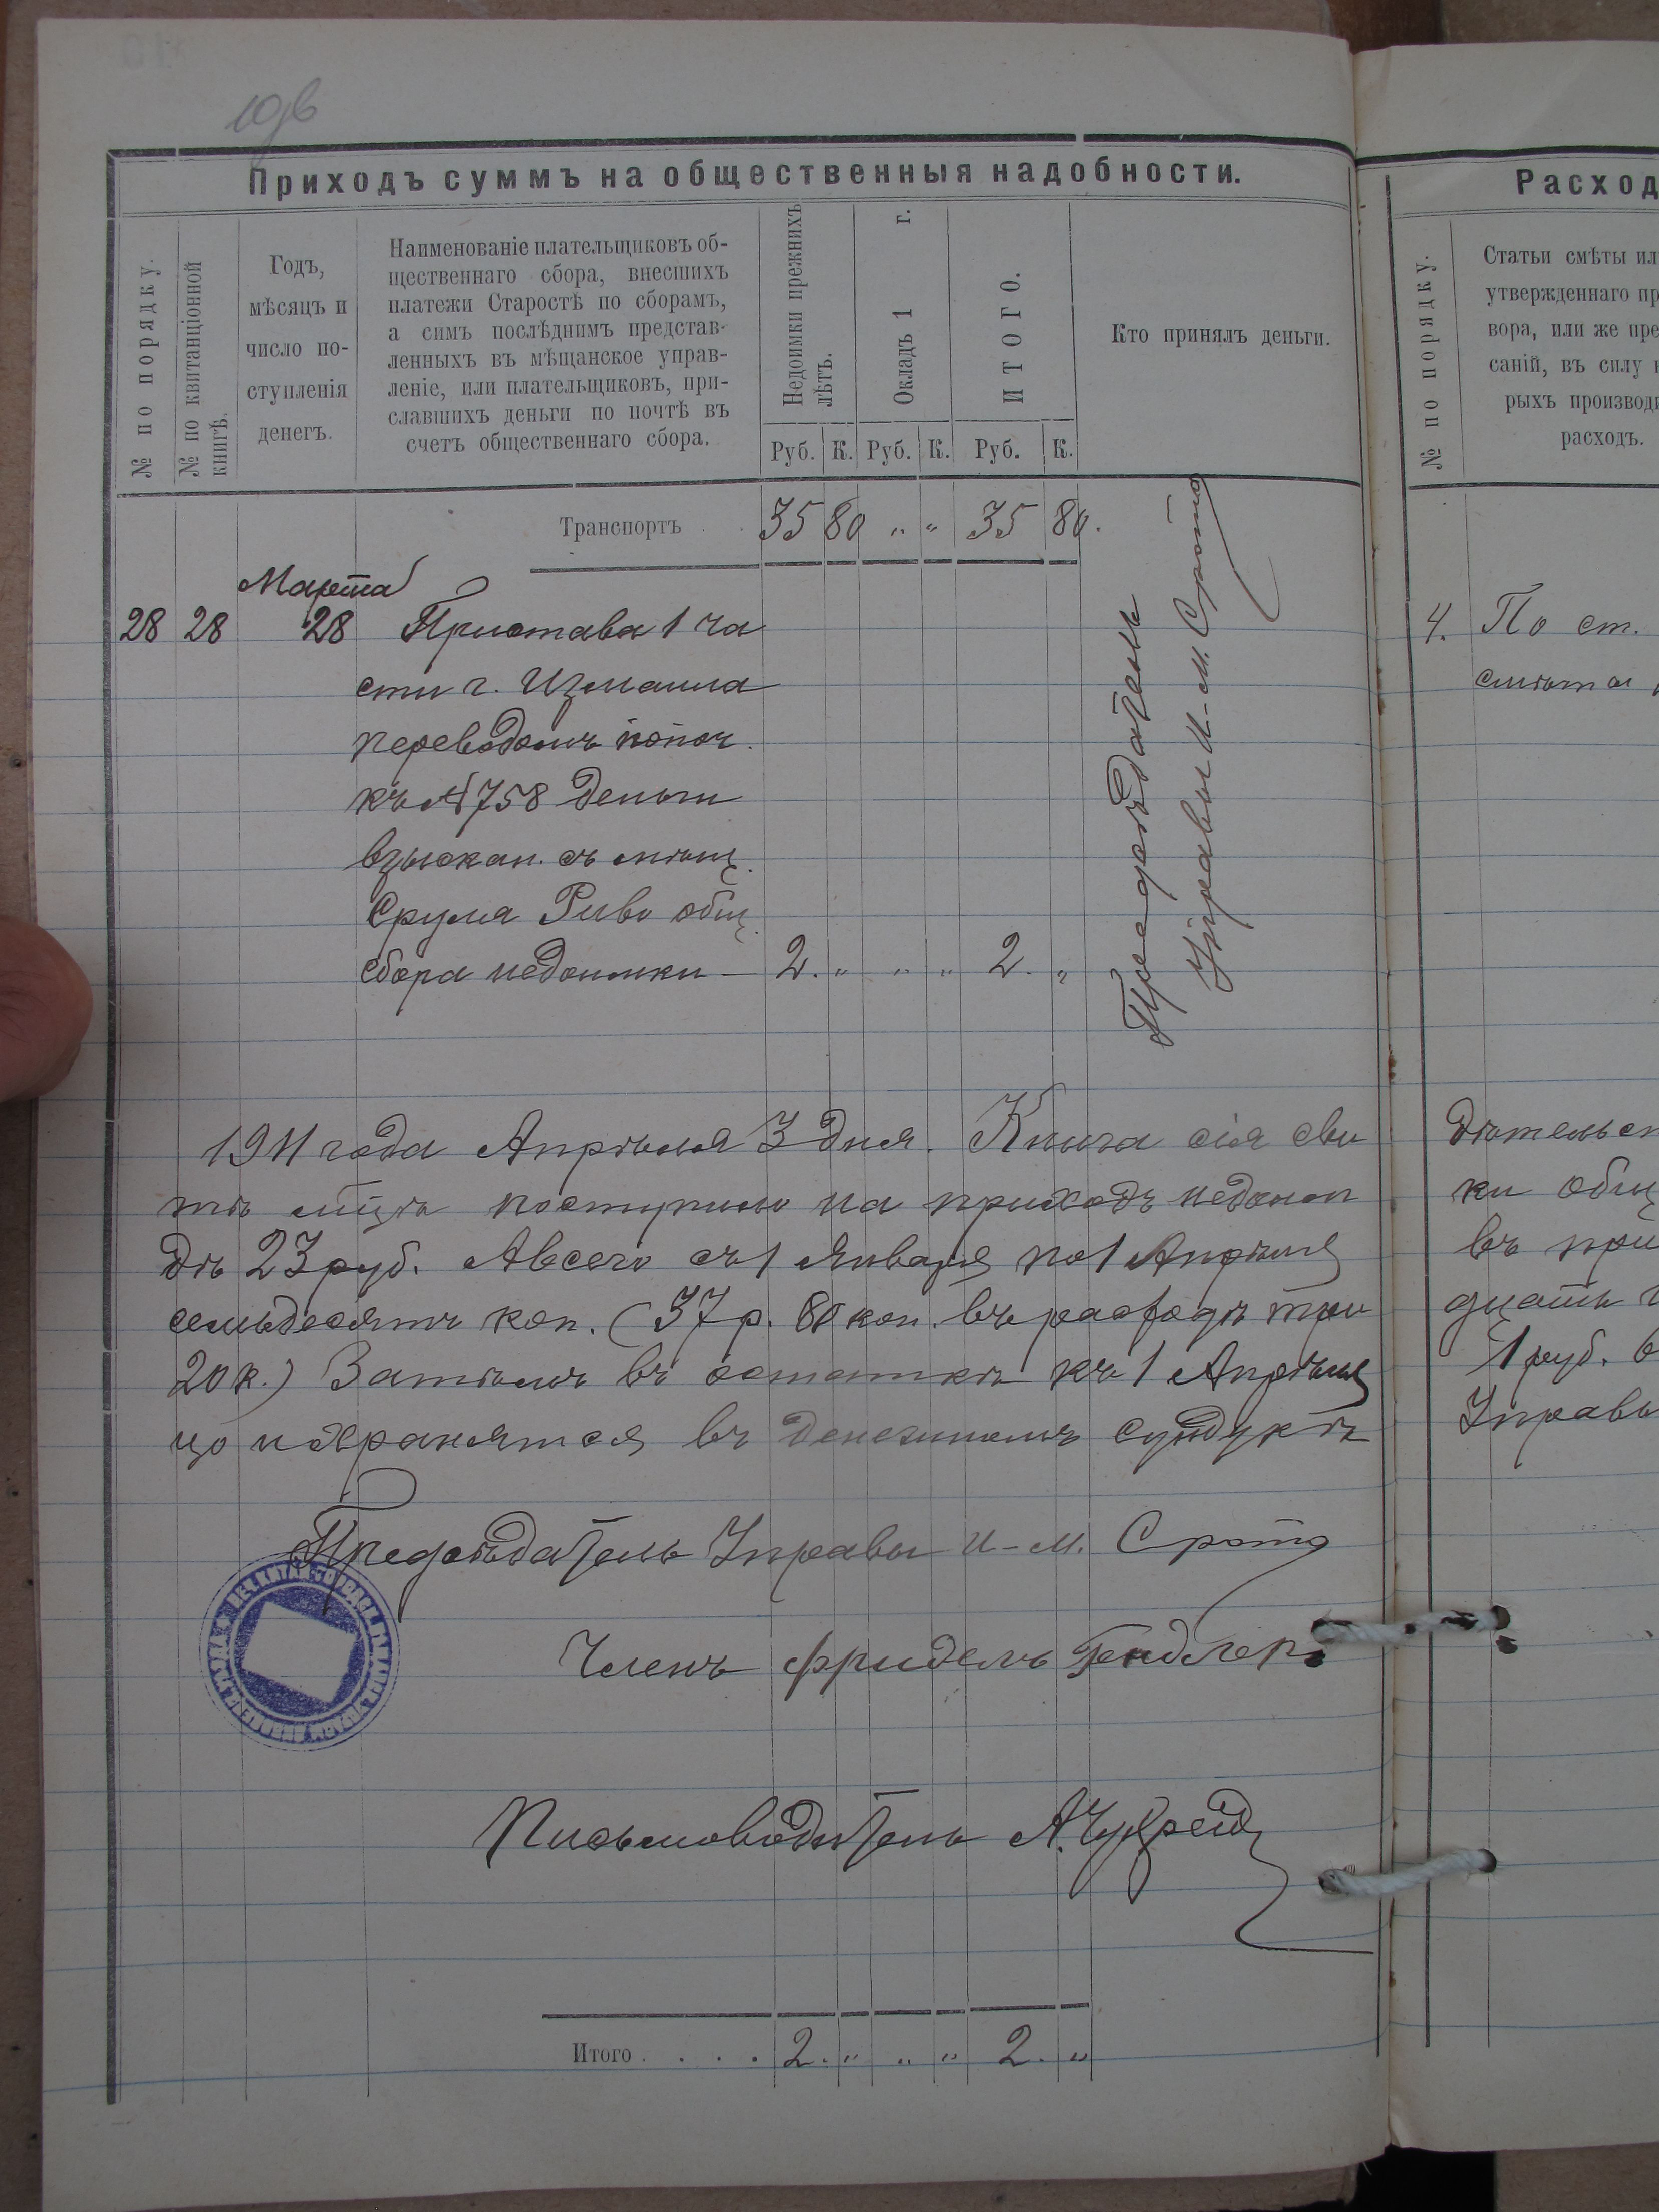 Приходъ суммъ на общественныя надобности.
№ по порядку.
№ по квитанціонной книгѣ.
Годъ,
мѣсяцъ и
число по-
ступленія
денегъ.
Наименованіе плательщиковъ об-
щественнаго сбора, внесшихъ
платежи Старостѣ по сборамъ,
а симъ послѣднимъ представ-
ленныхъ въ мѣщанское управ-
леніе, или плательщиковъ, при-
славшихъ деньги по почтѣ въ
счетъ общественнаго сбора.
Недоимки прежнихъ
лѣтъ.
Окладъ 1 г.
ИТОГО.
Руб. К. Руб. К. Руб. К.
Кто принялъ деньги.
Транспортъ 35 80 „ „ 35 80.
Марта
28 28 28 Пристава 1 ча
сти г. Измаила
переводомъ
къ № 758 деньги
взыскан. съ мѣщ.
Срумя Риво общ.
сбора недоимки — 2. „ „ „ 2. „
Предсѣдатель
Управы И-М. Срота
1911 года Апрѣля 3 дня. Книга сія сви
поступило на приходъ недоим
дѣ 23 руб. А всего съ 1 Января по 1 Апрѣля
семьдесятъ коп. (37 р. 80 коп. въ расходѣ три
20 к.) Затѣмъ въ остаткѣ къ 1 Апрѣля
въ денежномъ сундукѣ
Предсѣдатель Управы И-М. Срота
Членъ Фридель Гендлеръ
Письмоводитель А.
Итого . . . . 2. „ „ „ 2. „
Расход
№ по порядку.
Статьи смѣты ил
утвержденнаго пр
вора, или же пре
саній, въ силу к
рыхъ производ
расходъ.
4. По ст.
смѣты
дѣтельст
ки общ
въ при
дцать
1 руб. в
Управы